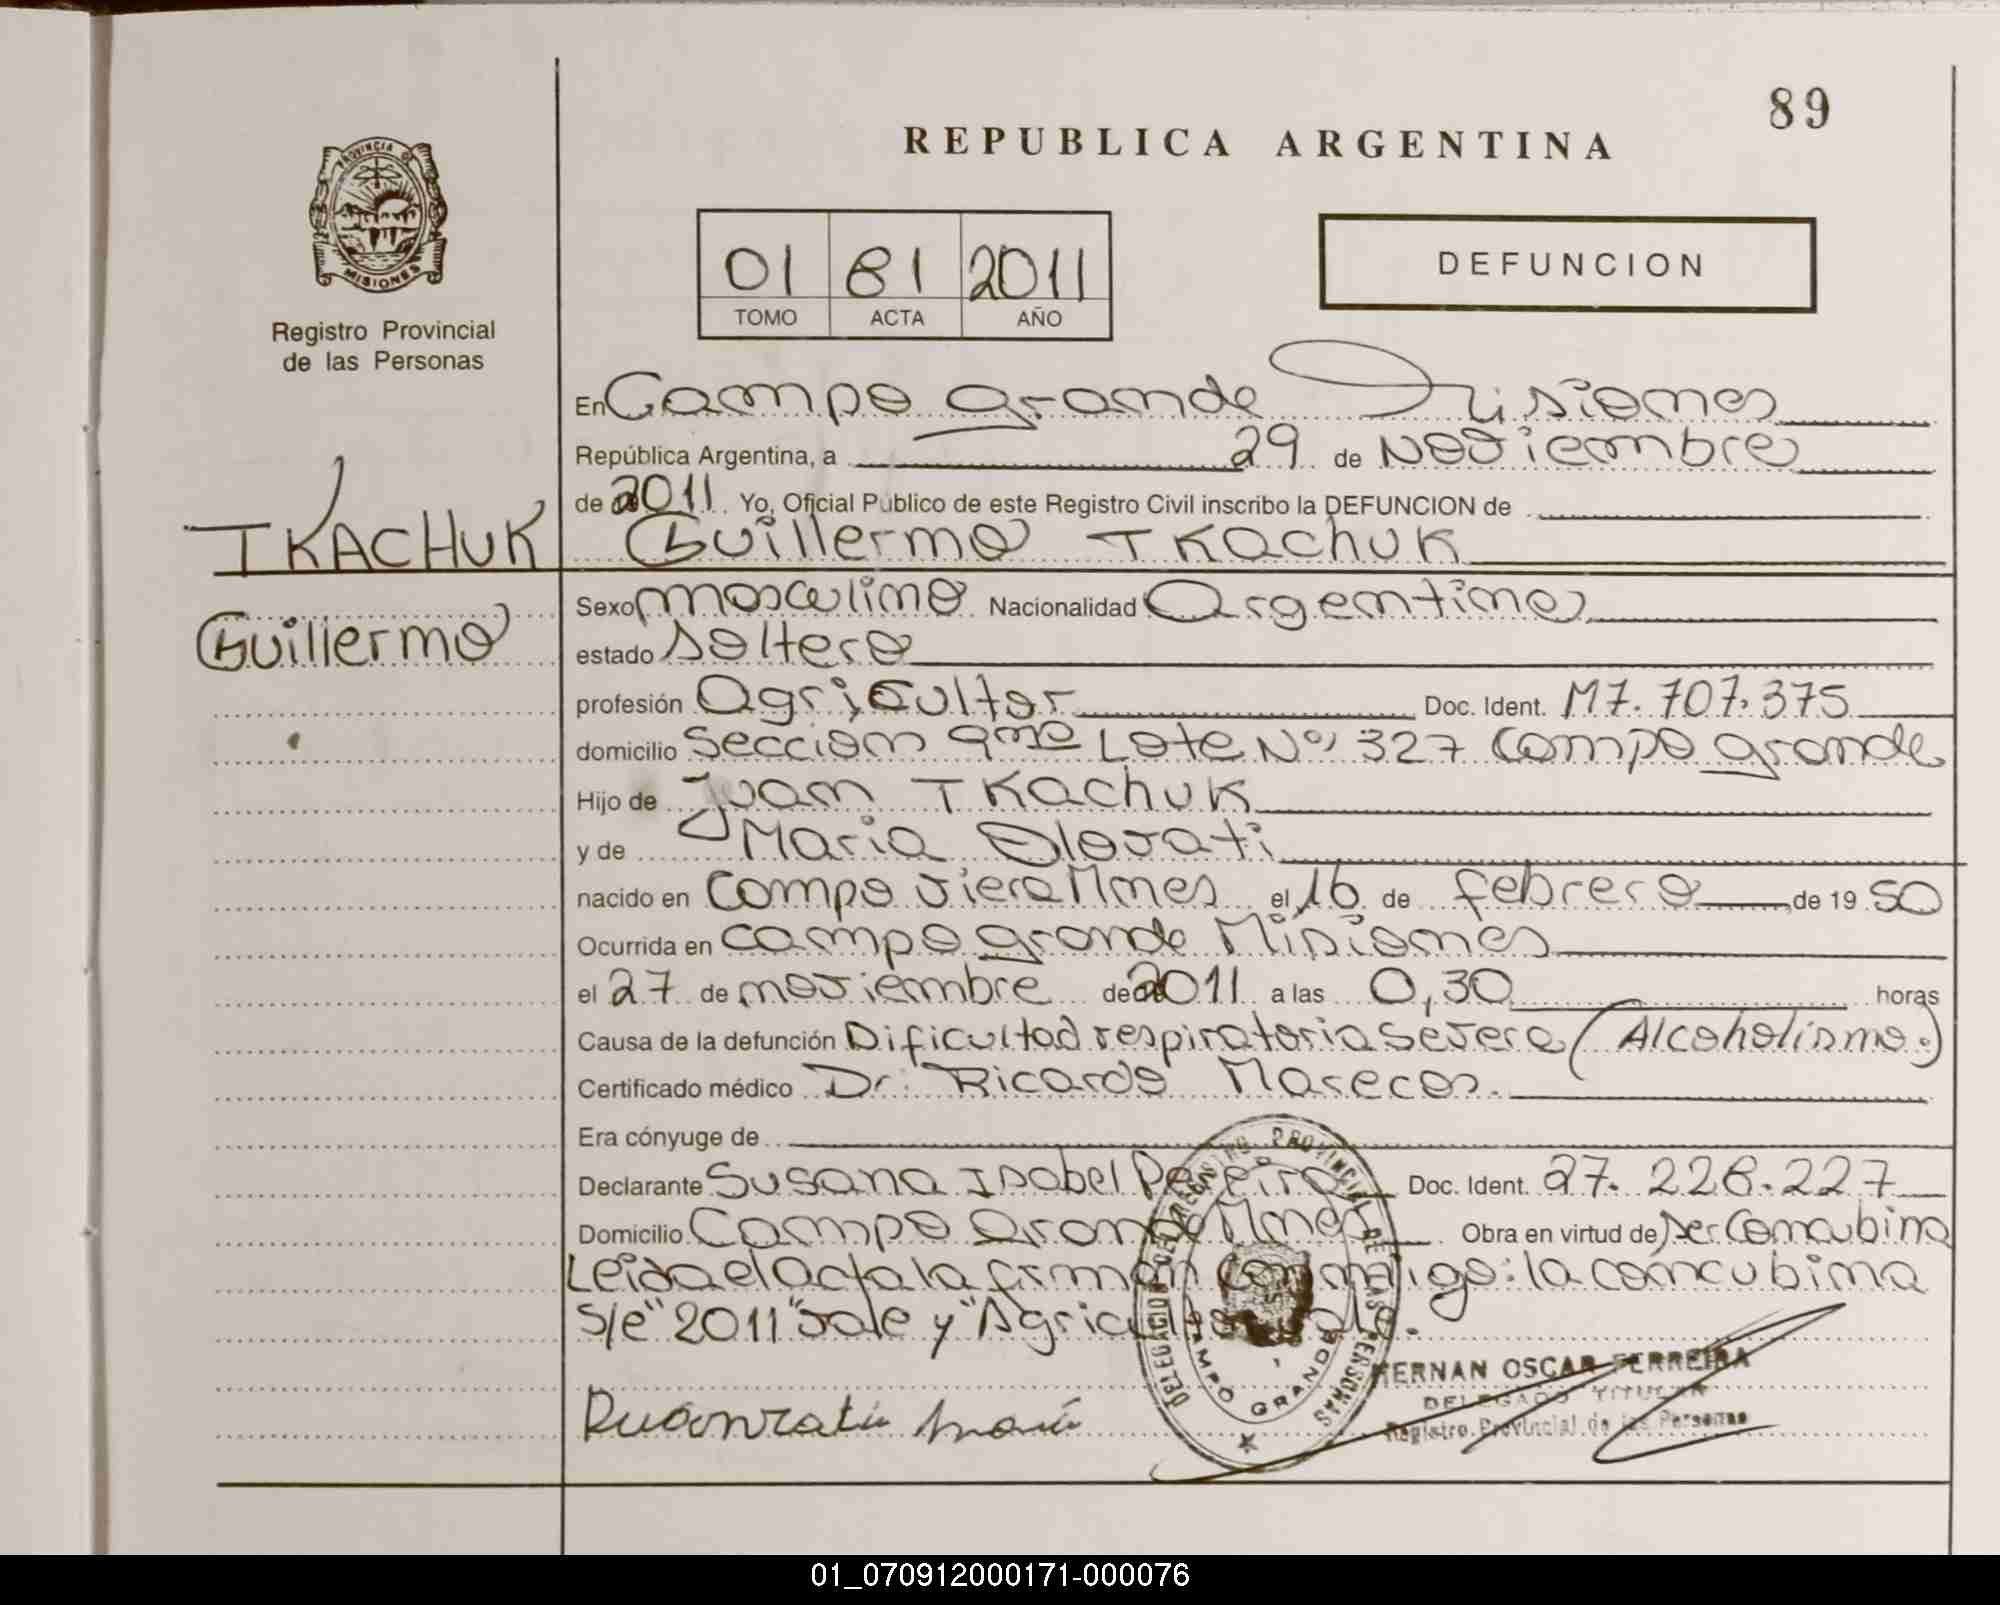 89
REPUBLICA ARGENTINA
PROVINCIA DE
MISIONES
Registro Provincial
de las Personas
01 81 2011
TOMO ACTA AÑO
DEFUNCION
En Campo grande Misiones
República Argentina, a 29 de Noviembre
de 2011 Yo, Oficial Público de este Registro Civil inscribo la DEFUNCION de
TKACHUK
Guillermo Tkachuk
Guillermo
Sexo masculino Nacionalidad Argentino
estado soltero
profesión Agricultor Doc. Ident. M7.707.375
domicilio Seccion 9na Lote Nº 327 campo grande
Hijo de Juan Tkachuk
y de Maria
nacido en campo viera Mnes el 16 de febrero de 1950
Ocurrida en campo grande Misiones
el 27 de noviembre de 2011 a las 0,30 horas
Causa de la defunción Dificultad respiratoria severa (Alcoholismo.)
Certificado médico Dr. Ricardo Marecos.
Era cónyuge de
Declarante Susana Isabel Pereira Doc. Ident. 27.228.227
Domicilio Campo Grande Mnes Obra en virtud de ser concubina
Leida el acta la firman conmigo: la concubina
s/e "2011" vale y "Agricultor" vale.
DELEGACION DEL REGISTRO PROVINCIAL DE LAS PERSONAS
CAMPO GRANDE
HERNAN OSCAR FERREIRA
DELEGADO TITULAR
Registro Provincial de las Personas
01_070912000171-000076